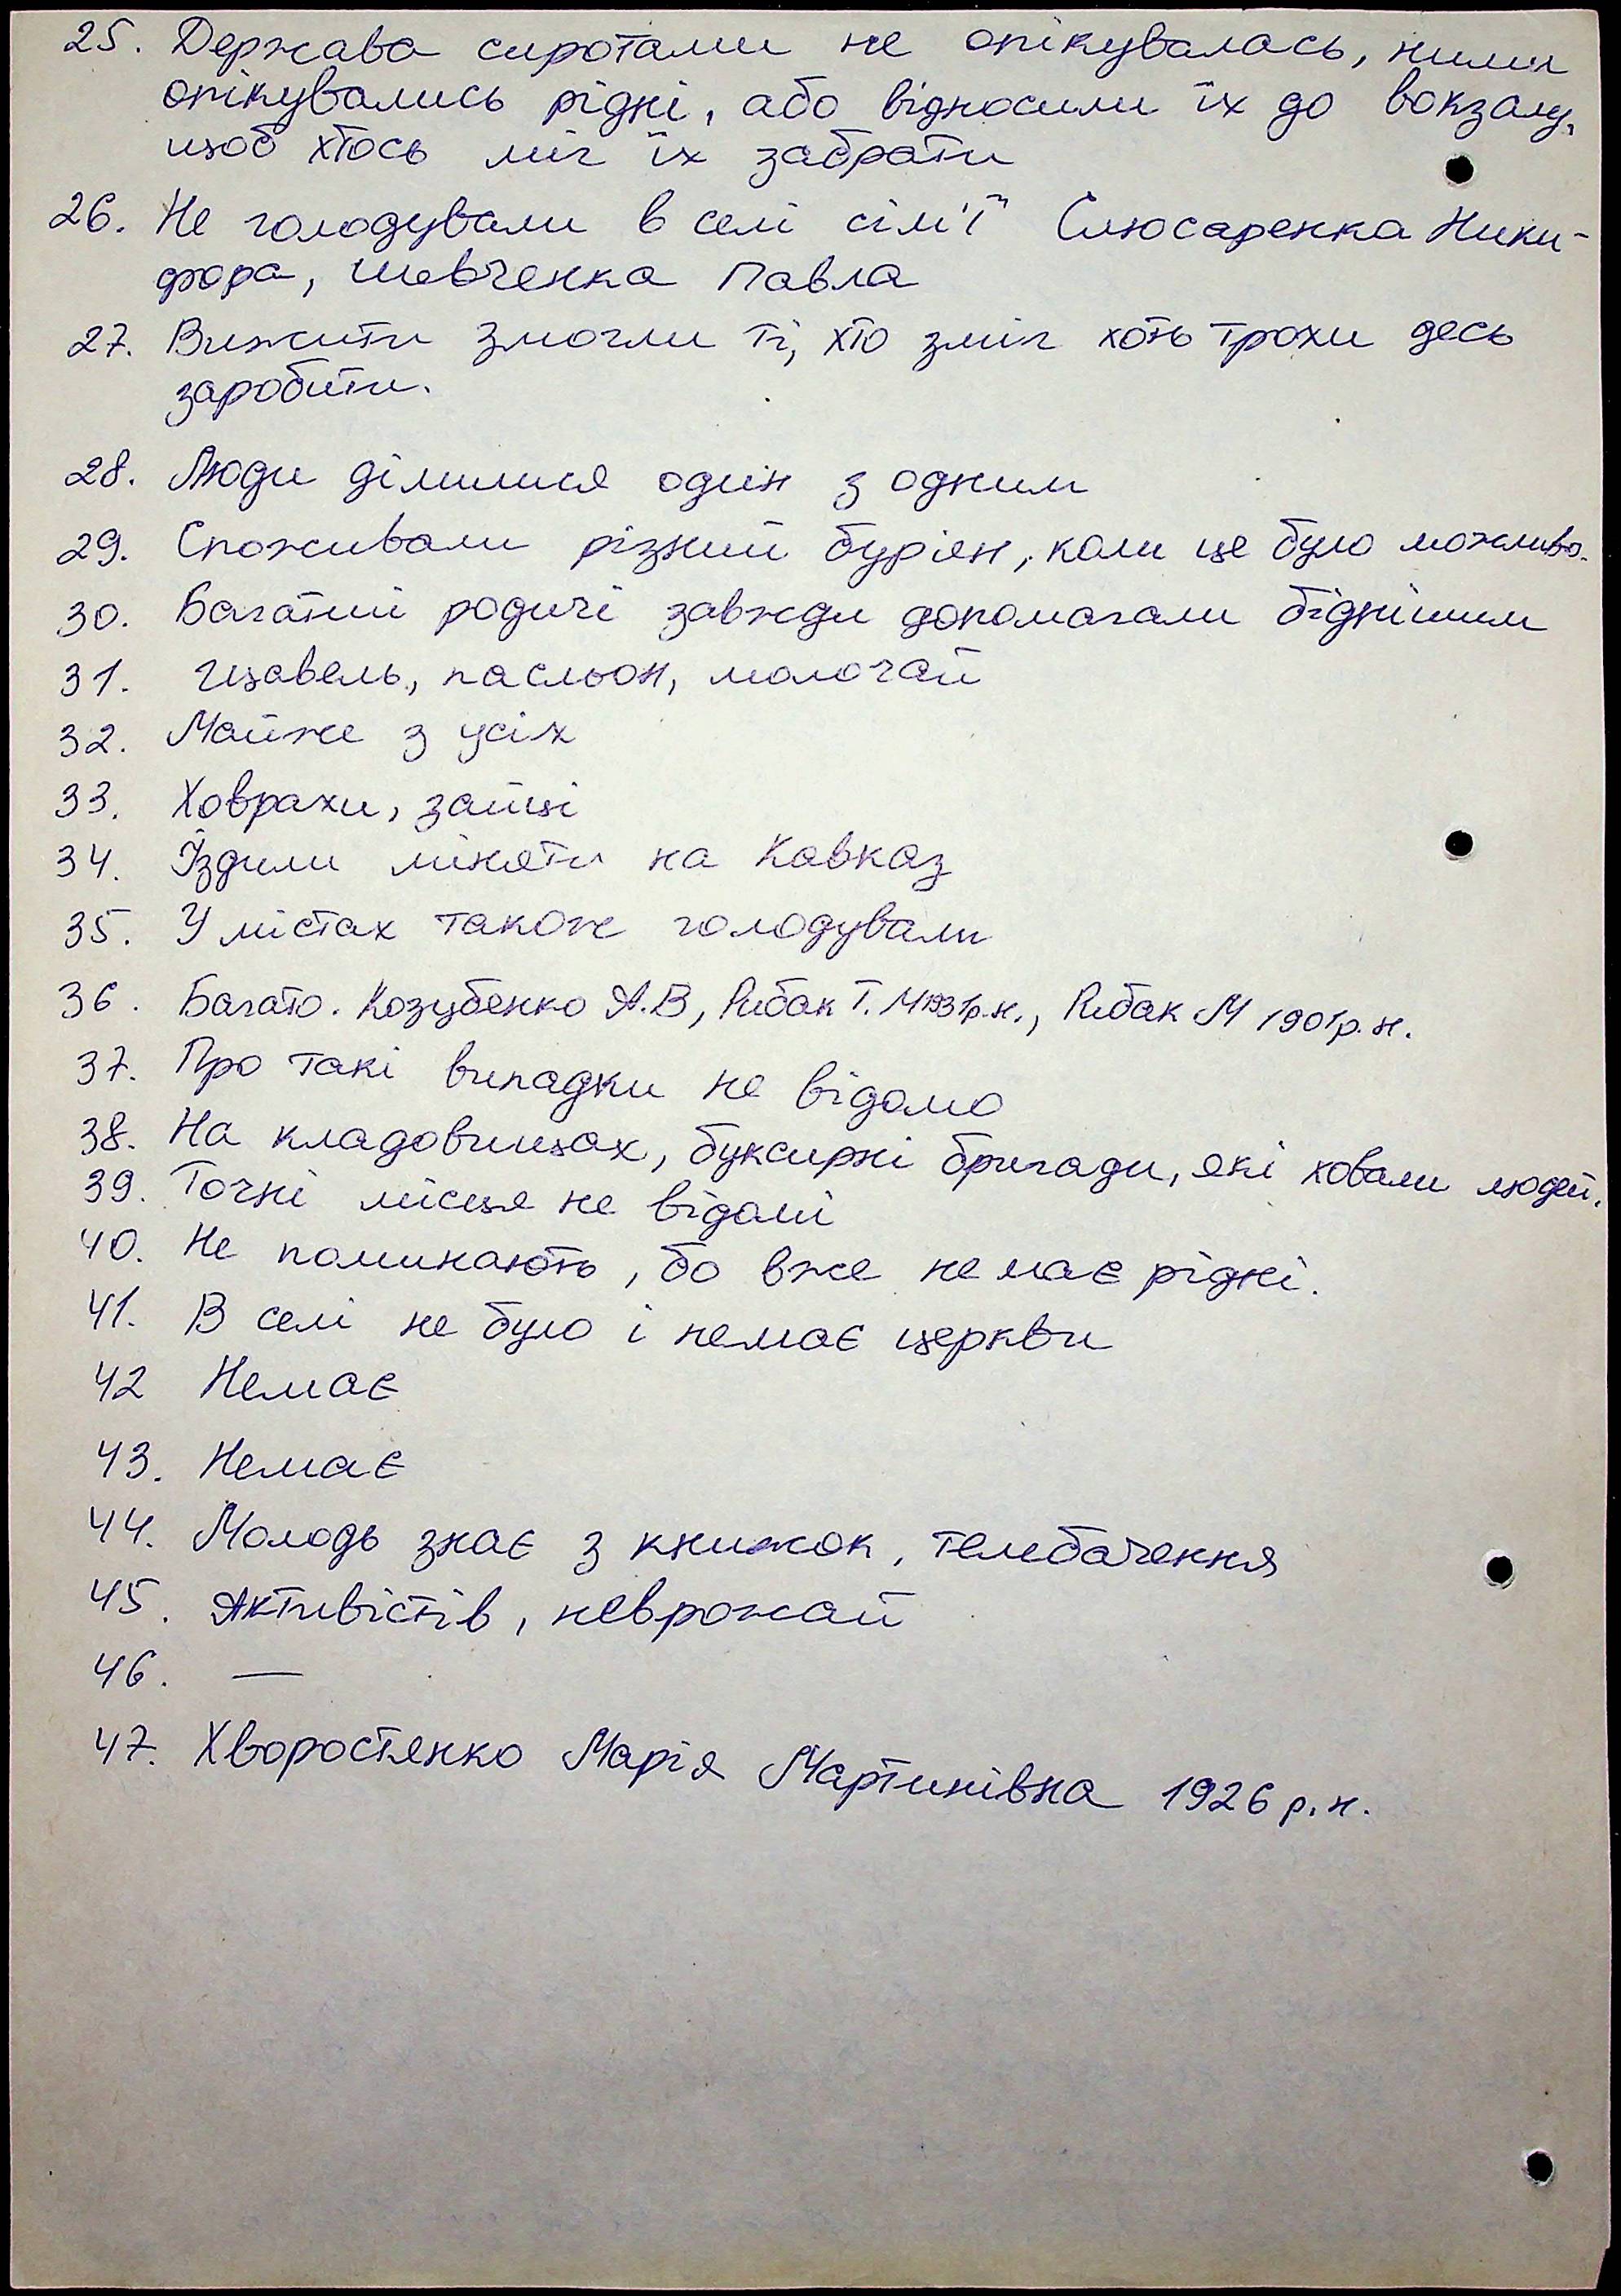 25. Держава сиротами не опікувалась, ними
опікувались рідні, або відносили їх до вокзалу,
щоб хтось міг їх забрати
26. Не голодували в селі сім'ї Слюсаренка Ники-
фора, Шевченка Павла
27. Вижити змогли ті, хто зміг хоть трохи десь
заробити.
28. Люди ділилися один з одним
29. Споживали різний бур'ян, коли це було можливо.
30. Багатші родичі завжди допомагали біднішим
31. Щавель, пасльон, молочай
32. Майже з усіх
33. Ховрахи, зайці
34. Їздили міняти на Кавказ
35. У містах також голодували
36. Багато. Козубенко А.В, Рибак Т. М 1931р.н., Рибак М 1901р.н.
37. Про такі випадки не відомо
38. На кладовищах, буксирні бригади, які ховали людей.
39. Точні місця не відомі
40. Не поминають, бо вже немає рідні.
41. В селі не було і немає церкви
42 Немає
43. Немає
44. Молодь знає з книжок, телебачення
45. Активістів, неврожай
46. —
47. Хворостянко Марія Мартинівна 1926 р.н.